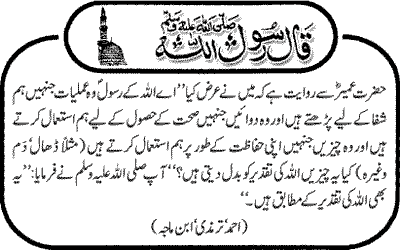 قال رسول اللہ صلی اللہ علیہ وسلم
حضرت عمیرؓ سے روایت ہے کہ میں نے عرض کیا ”اے اللہ کے رسولؐ وہ عملیات جنہیں ہم
شفا کے لیے پڑھتے ہیں اور وہ دوائیں جنہیں صحت کے حصول کے لیے ہم استعمال کرتے
ہیں اور وہ چیزیں جنہیں اپنی حفاظت کے طور پر ہم استعمال کرتے ہیں (مثلاً ڈھال‘ دَم
وغیرہ) کیا یہ چیزیں اللہ کی تقدیر کو بدل دیتی ہیں؟“ آپ صلی اللہ علیہ وسلم نے فرمایا: ”یہ
بھی اللہ کی تقدیر کے مطابق ہیں۔“
(احمد‘ ترمذی‘ ابن ماجہ)